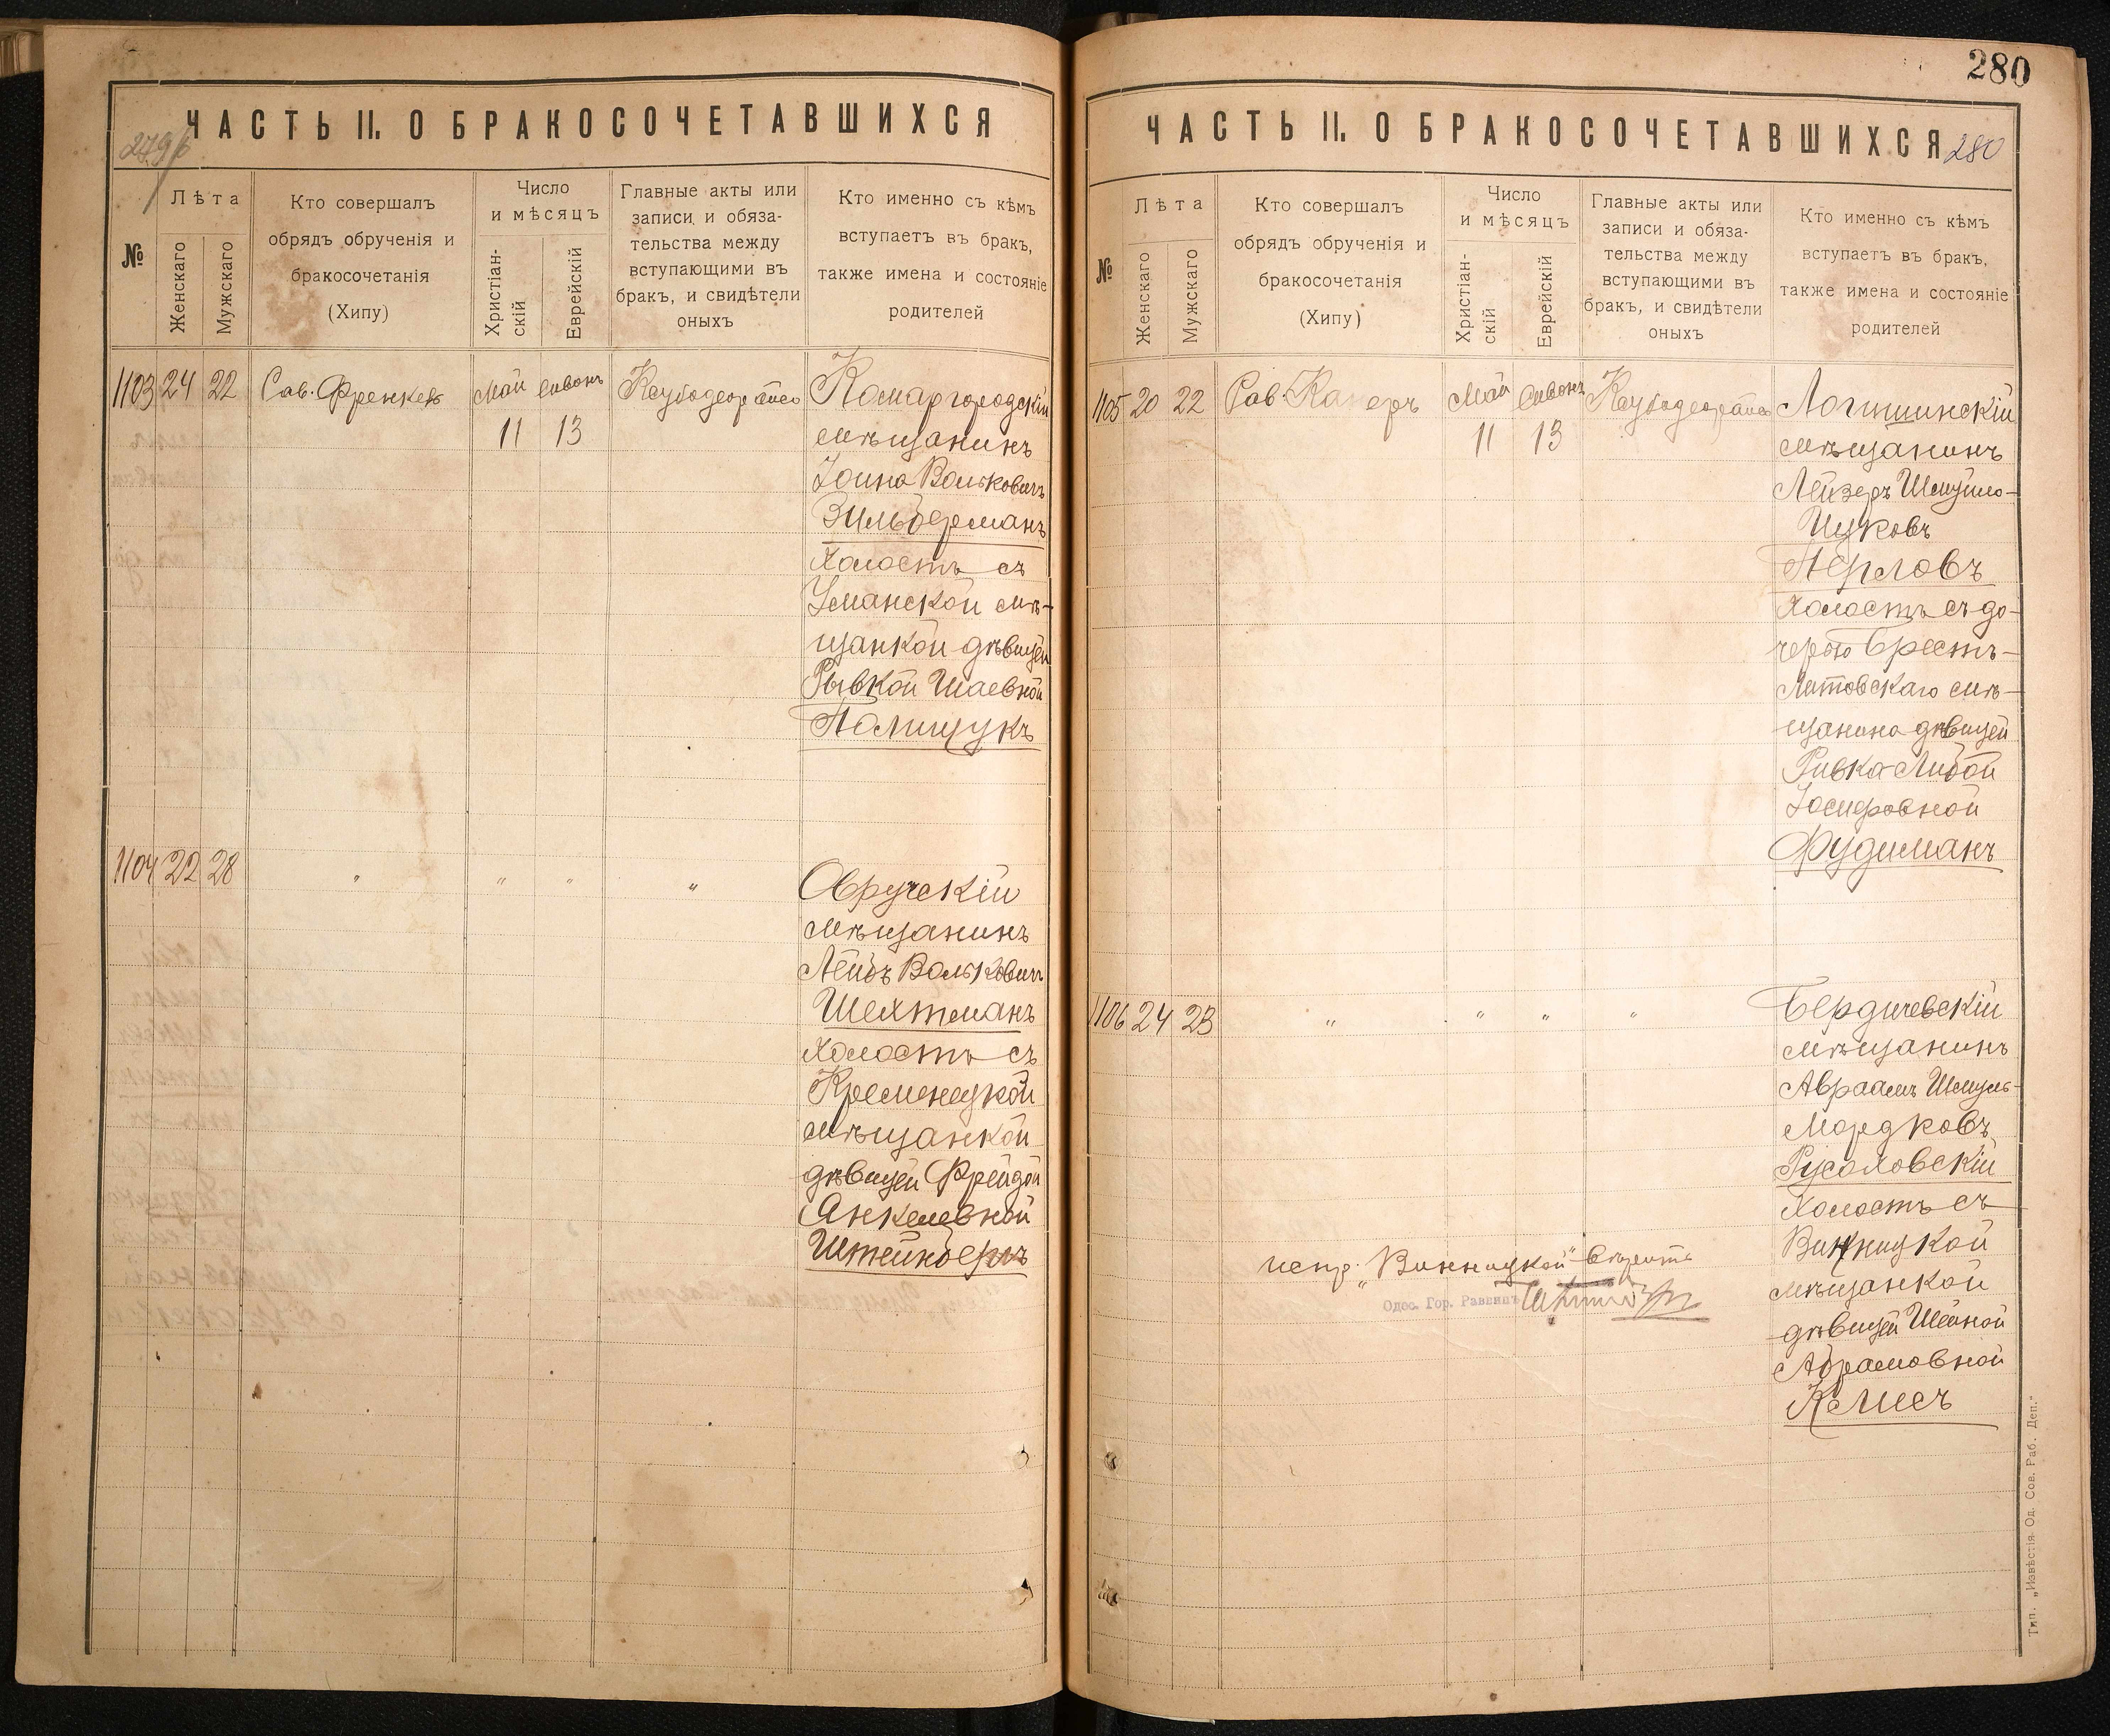 ЧАСТЬ II. О БРАКОСОЧЕТАВШИХСЯ
№
Лѣта
Женскаго
Мужскаго
Кто совершалъ
обрядъ обрученія и
бракосочетанія
(Хипу)
Число
и мѣсяцъ
Христіан-
скій
Еврейскій
Главные акты или
записи и обяза-
тельства между
вступающими въ
бракъ, и свидѣтели
оныхъ
Кто именно съ кѣмъ
вступаетъ въ бракъ,
также имена и состояніе
родителей
1103 24 22
Май Сивонъ
11 13
Комаргородскій
мѣщанинъ
Іоина Вольковичъ
Зильберманъ
холостъ съ
Уманской мѣ-
щанкой дѣвицей
Рывкой Шаевной
Полищукъ
1104 22 28 " " " "
Овручскій
мѣщанинъ
Лейбъ Вольковичъ
Шехтманъ
холостъ съ
Кременецкой
мѣщанкой
дѣвицей Фрейдой
Янкелевной
280
ЧАСТЬ II. О БРАКОСОЧЕТАВШИХСЯ
280
№
Лѣта
Женскаго
Мужскаго
Кто совершалъ
обрядъ обрученія и
бракосочетанія
(Хипу)
Число
и мѣсяцъ
Христіан-
скій
Еврейскій
Главные акты или
записи и обяза-
тельства между
вступающими въ
бракъ, и свидѣтели
оныхъ
Кто именно съ кѣмъ
вступаетъ въ бракъ,
также имена и состояніе
родителей
1105 20 22
Рав. Канеръ
Май Сивонъ
11 13
Логишинскій
мѣщанинъ
Лейзеръ Шмуйло-
Ицковъ
Перловъ
холостъ съ до-
черью Брестъ-
Литовскаго мѣ-
щанина дѣвицей
Ривка-Либой
Іосифовной
Фудиманъ
1106 24 23 " " " "
Бердичевскій
мѣщанинъ
Авраамъ Шмуль-
Мордковъ
Русаховскій
холостъ съ
Винницкой
мѣщанкой
дѣвицей Шейной
Абрамовной
Келисъ
испр. "Винницкой" вѣрить
Одес. Гор. Раввинъ
Тип. „Извѣстія Од. Сов. Раб. Деп."